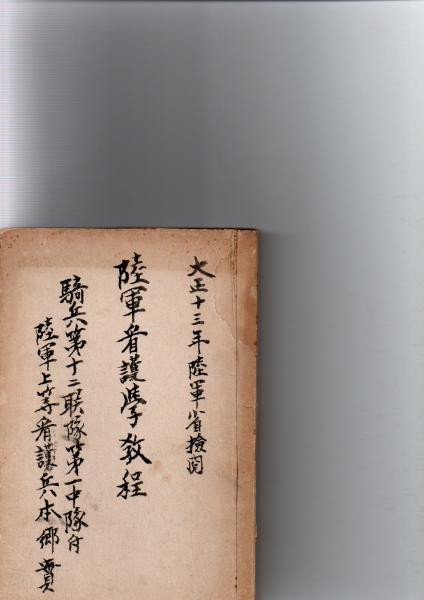 大正十三年陸軍省検閲
陸軍看護學教程
騎兵第十二聨隊第一中隊付
陸軍上等看護兵本郷